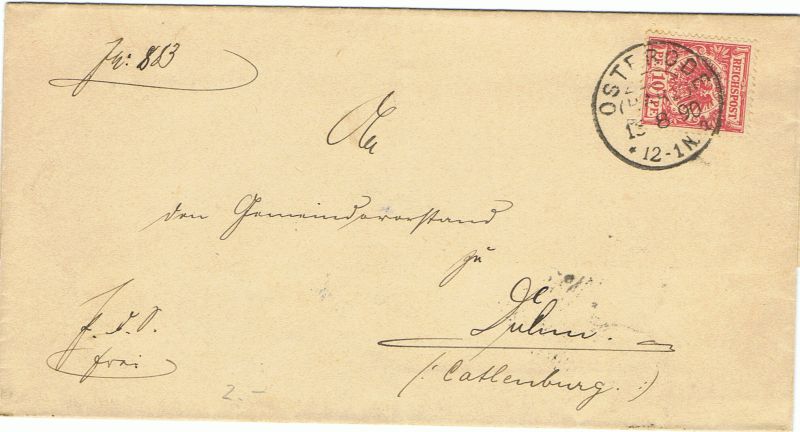 Jn: 883
OSTERODE
8 90
* 12-1N.
REICHSPOST
10 PF
An
den Gemeindevorstand
zu
Dulm.
(:Catlenburg.:)
frei
2.-